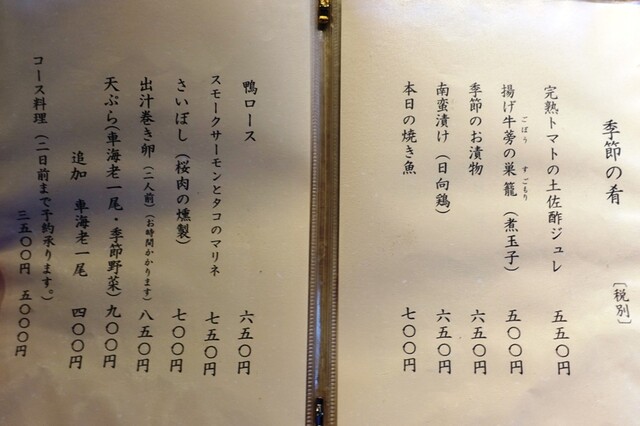 季節の肴 〔税別〕
完熟トマトの土佐酢ジュレ 五五〇円
揚げ牛蒡の巣籠（煮玉子） 五〇〇円
ごぼう すごもり
季節のお漬物 六五〇円
南蛮漬け（日向鶏） 六五〇円
本日の焼き魚 七〇〇円
鴨ロース 六五〇円
スモークサーモンとタコのマリネ 七五〇円
さいぼし（桜肉の燻製） 七〇〇円
出汁巻き卵（二人前）（お時間かかります） 八五〇円
天ぷら（車海老一尾・季節野菜） 九〇〇円
追加 車海老一尾 四〇〇円
コース料理（二日前まで予約承ります。）
三五〇〇円 五〇〇〇円